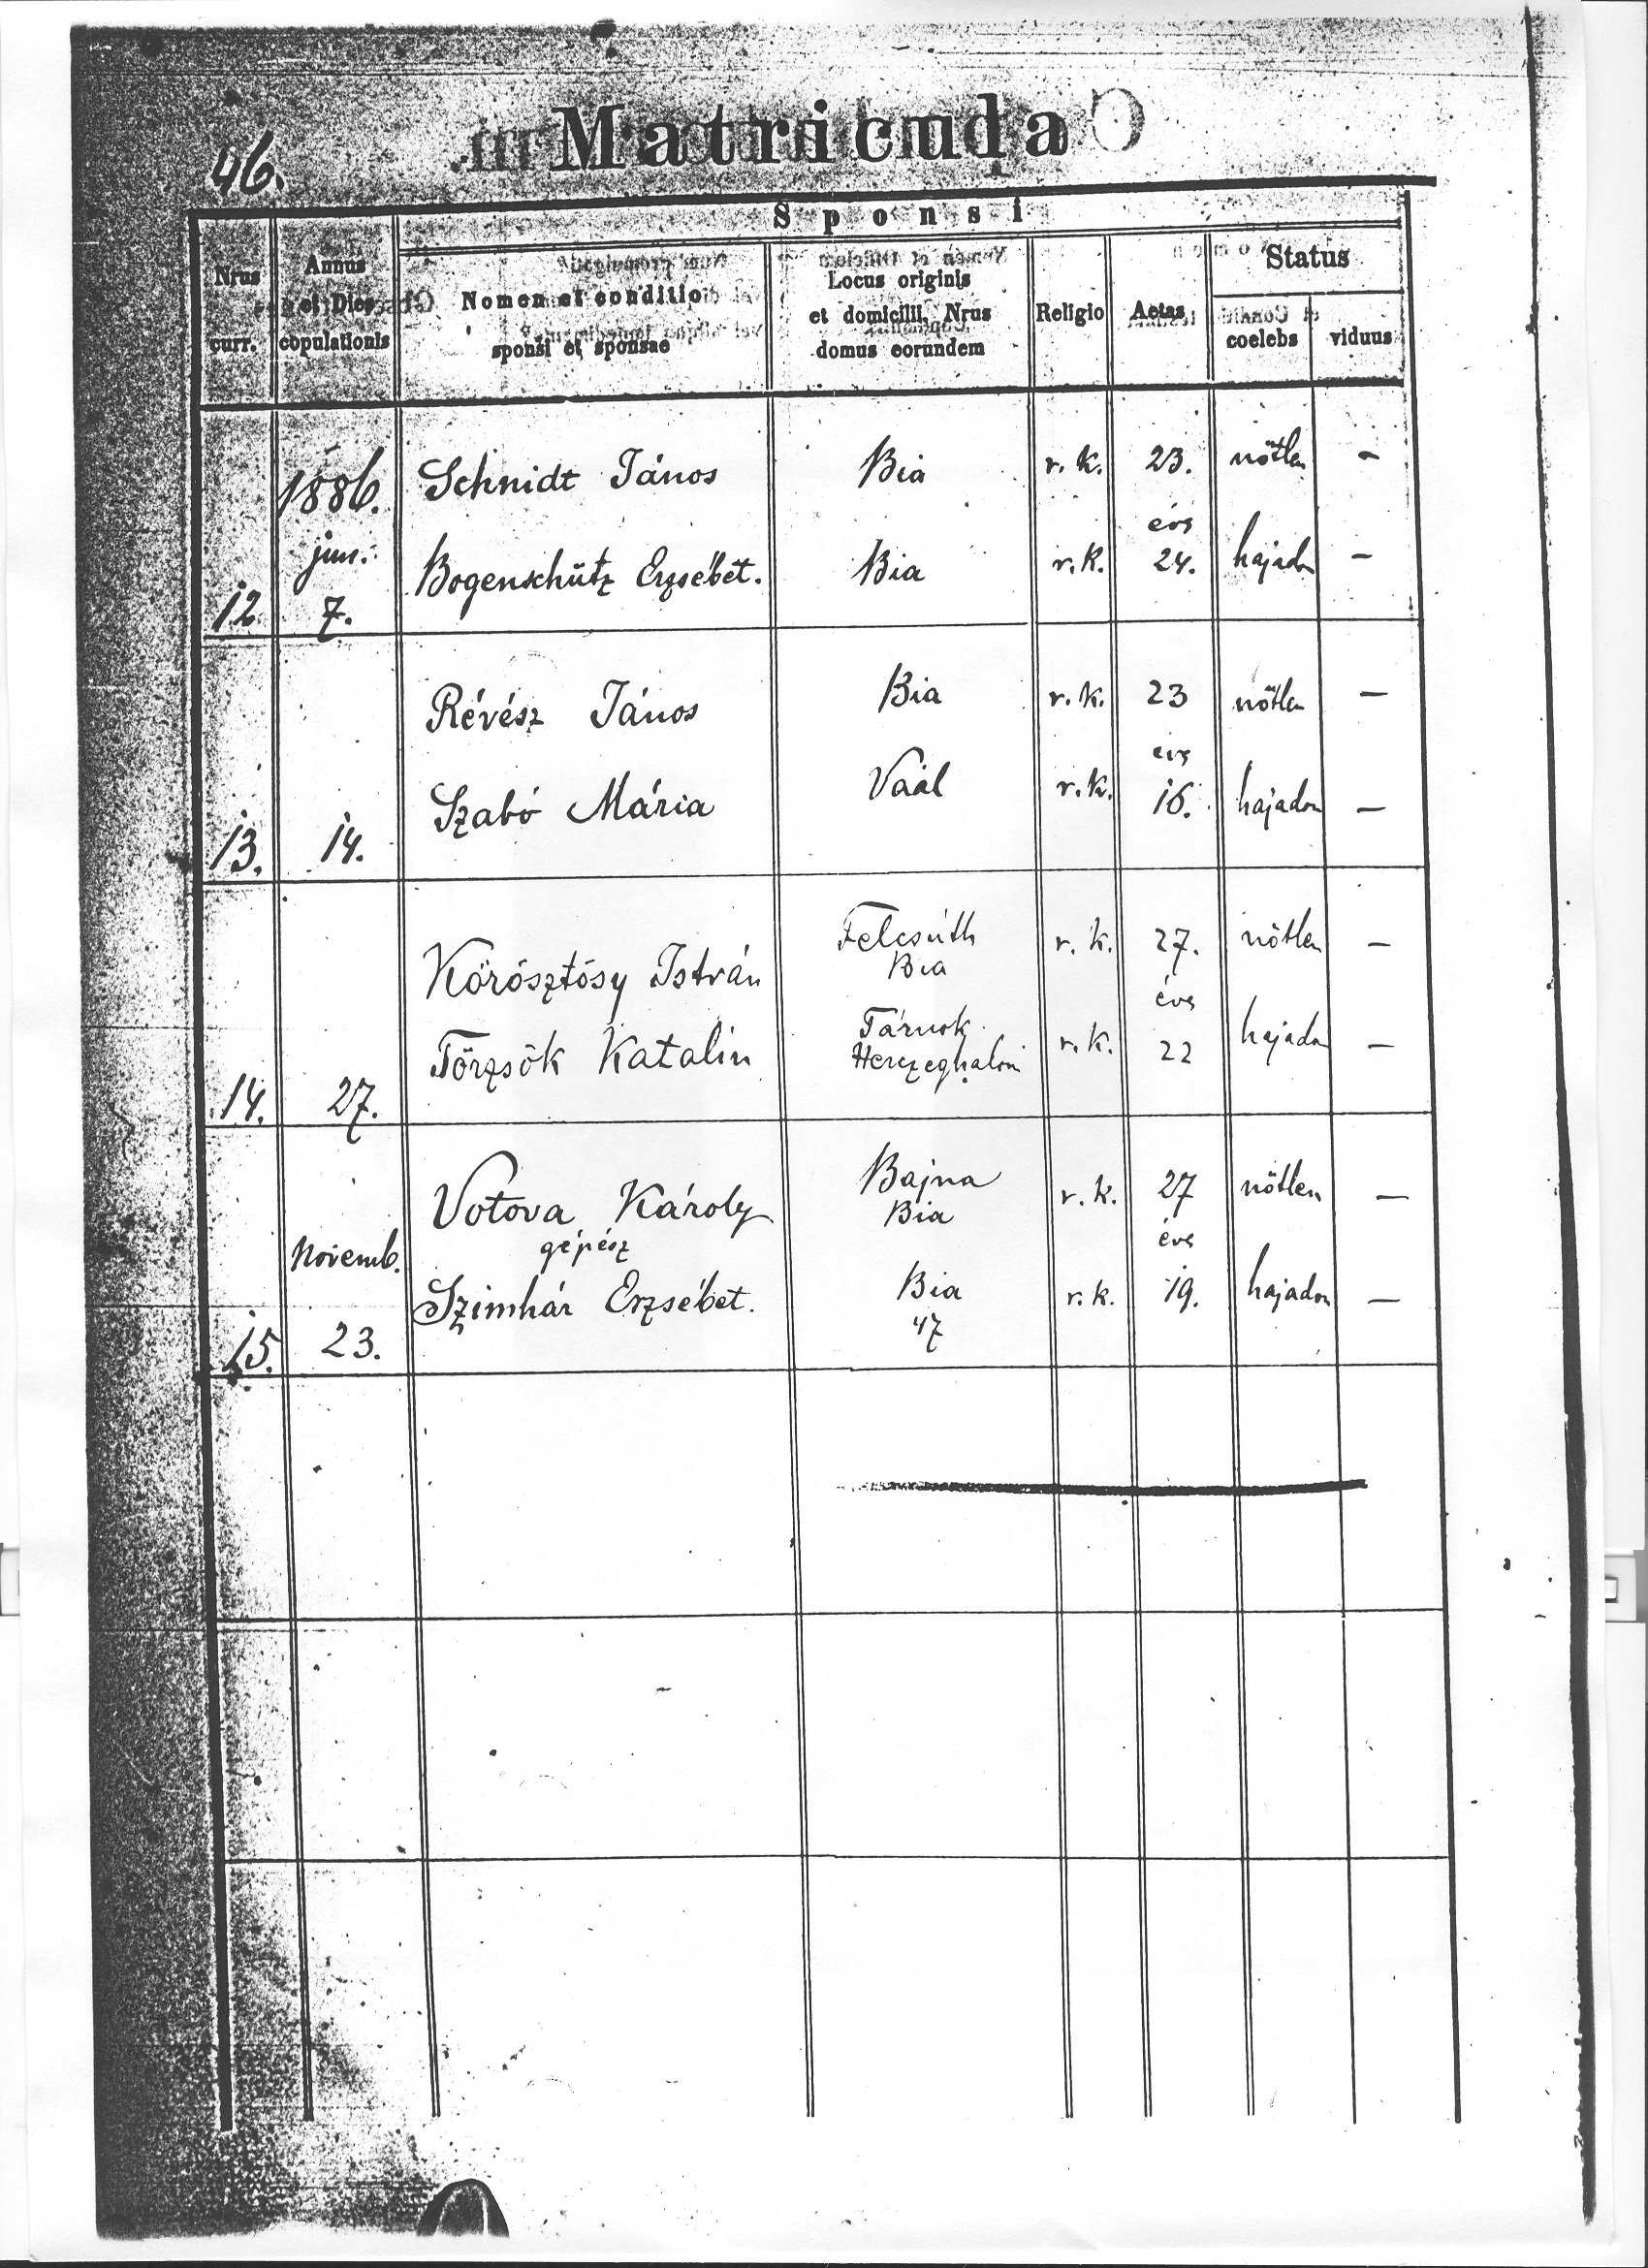 46.
Matricula
Sponsi
Nrus curr.
Annus et Dies copulationis
Nomen et conditio sponsi et sponsae
Locus originis et domicilii, Nrus domus eorundem
Religio
Aetas
Status
coelebs
viduus
1886. Schmidt János Bia r. k. 23. nőtlen -
jun. éves
12 7. Bogenschütz Erzsébet. Bia r. k. 24. hajadon -
Révész János Bia r. k. 23 nőtlen -
éves
Szabó Mária Vaál r. k. 16. hajadon -
13. 14.
Felcsúth
Körösztösy István Bia r. k. 27. nőtlen -
éves
Tárnok
Törzsök Katalin Herczeghalom r. k. 22 hajadon -
14. 27.
Bajna
Votova Károly Bia r. k. 27 nőtlen -
gépész éves
Novemb.
Szimhár Erzsébet. Bia r. k. 19. hajadon -
47
15. 23.